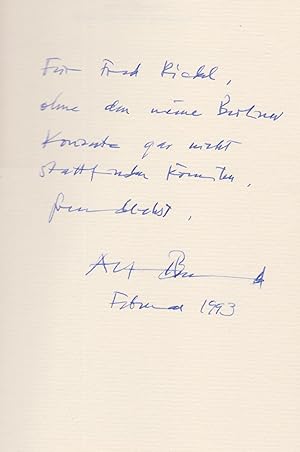 Für Fred Rickel,
ohne den meine Berliner
Konzerte gar nicht
stattfinden könnten,
freundlichst,
Alf B
Februar 1993